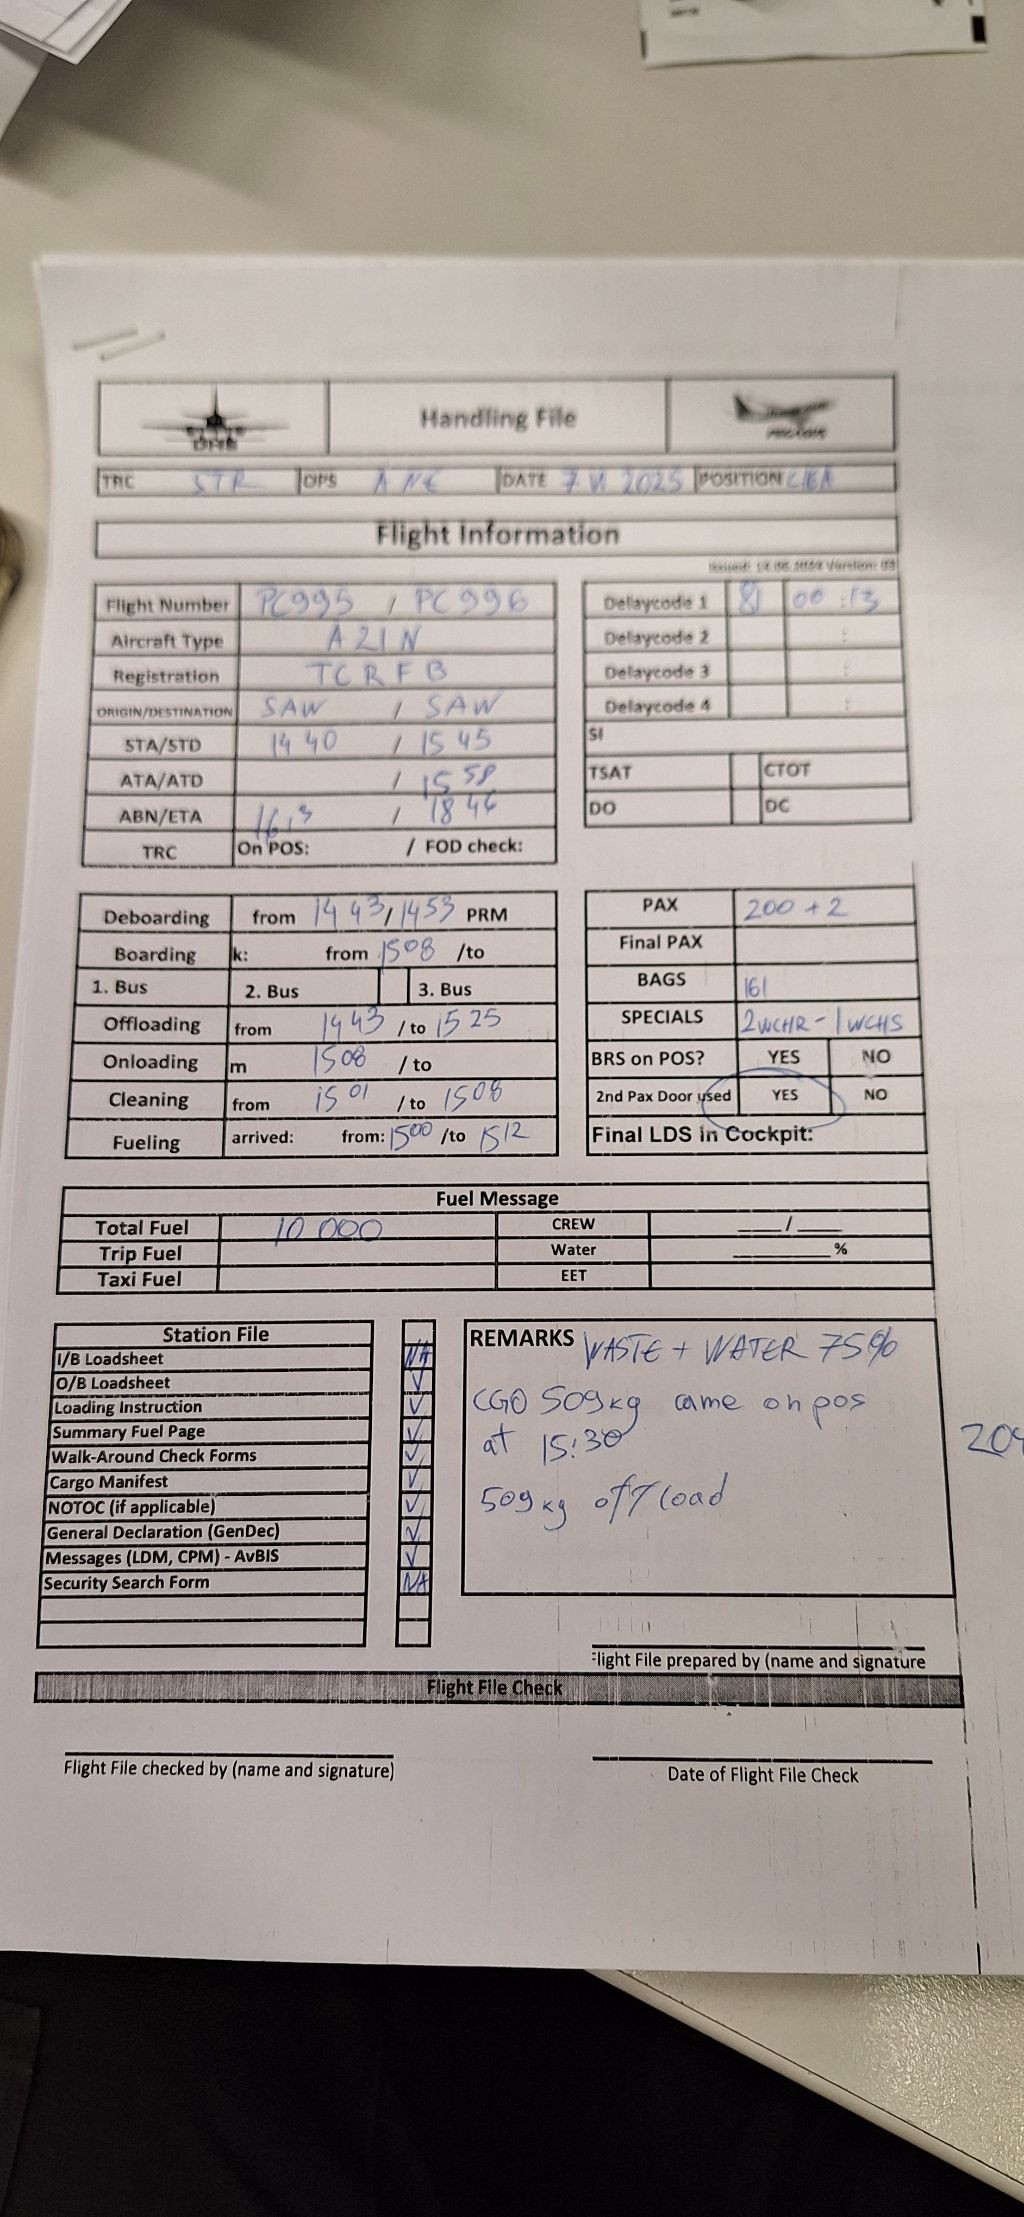 Handling File
TRC STR OPS ANE DATE 7 VI 2025 POSITION
Flight Information
Flight Number PC995 / PC996
Aircraft Type A21N
Registration TCRFB
ORIGIN/DESTINATION SAW / SAW
STA/STD 1440 / 1545
ATA/ATD / 1558
ABN/ETA / 1846
TRC On POS: / FOD check:
Delaycode 1 81 00:13
Delaycode 2 :
Delaycode 3 :
Delaycode 4 :
SI
TSAT CTOT
DO DC
Deboarding from 1443/1453 PRM
Boarding k: from 1508 /to
1. Bus 2. Bus 3. Bus
Offloading from 1443 /to 1525
Onloading m 1508 /to
Cleaning from 1501 /to 1508
Fueling arrived: from: 1500 /to 1512
PAX 200 + 2
Final PAX
BAGS 161
SPECIALS 2WCHR - 1WCHS
BRS on POS? YES NO
2nd Pax Door used YES NO
Final LDS in Cockpit:
Fuel Message
Total Fuel 10 000 CREW ___/___
Trip Fuel Water ______%
Taxi Fuel EET
Station File
I/B Loadsheet NA
O/B Loadsheet ✓
Loading Instruction ✓
Summary Fuel Page ✓
Walk-Around Check Forms ✓
Cargo Manifest ✓
NOTOC (if applicable) ✓
General Declaration (GenDec) ✓
Messages (LDM, CPM) - AvBIS ✓
Security Search Form NA
REMARKS WASTE + WATER 75%
CGO 509kg came on pos
at 15:30
509 kg offload
Flight File prepared by (name and signature
Flight File Check
Flight File checked by (name and signature)
Date of Flight File Check